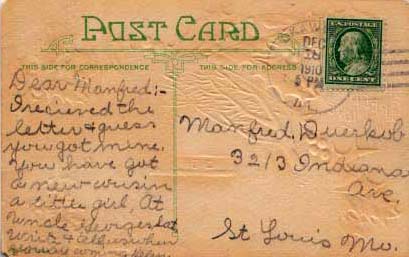 POST CARD
THIS SIDE FOR CORRESPONDENCE
THIS SIDE FOR ADDRESS
DEC
1910
5 PM
ILL.
U.S. POSTAGE
ONE CENT
Dear Manfred:-
I recieved the
letter & guess
you got mine.
You have got
a new cousin
a little girl. At
Uncle Georges
Write & tell us when
you are coming Helen
Manfred Duerkob
3213 Indiana
Ave.
St Louis Mo.